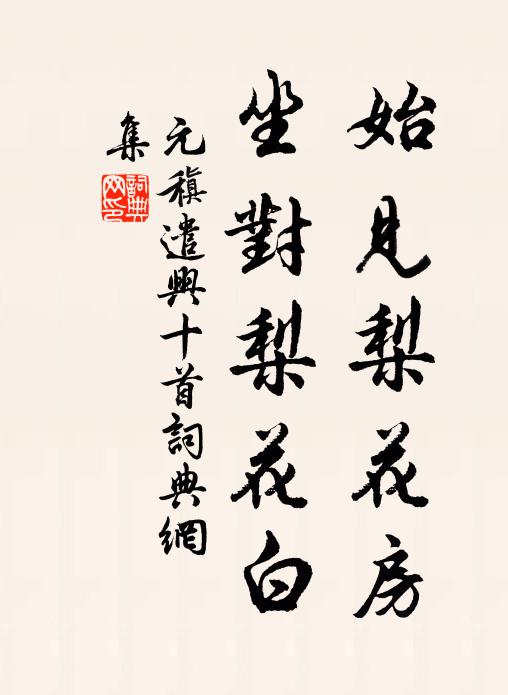 始見梨花房
坐對梨花白
元稹遣興十首詞典網
集
詞典网印